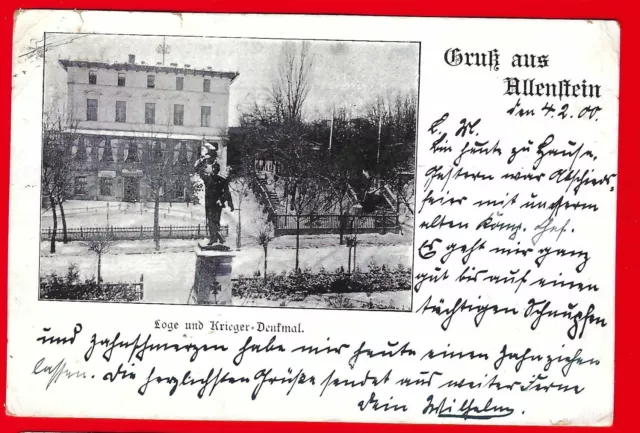 Gruß aus
Allenstein
den 4.2.00.
L. M.
Bin heute zu Hause.
Gestern war Abschieds-
feier mit unserm
alten Komp. Chef.
Es geht mir ganz
gut bis auf einen
tüchtigen Schnupfen
Loge und Krieger-Denkmal.
und Zahnschmerzen habe mir heute einen Zahn ziehen
lassen. Die herzlichsten Grüße sendet aus weiter Ferne
Dein Wilhelm.